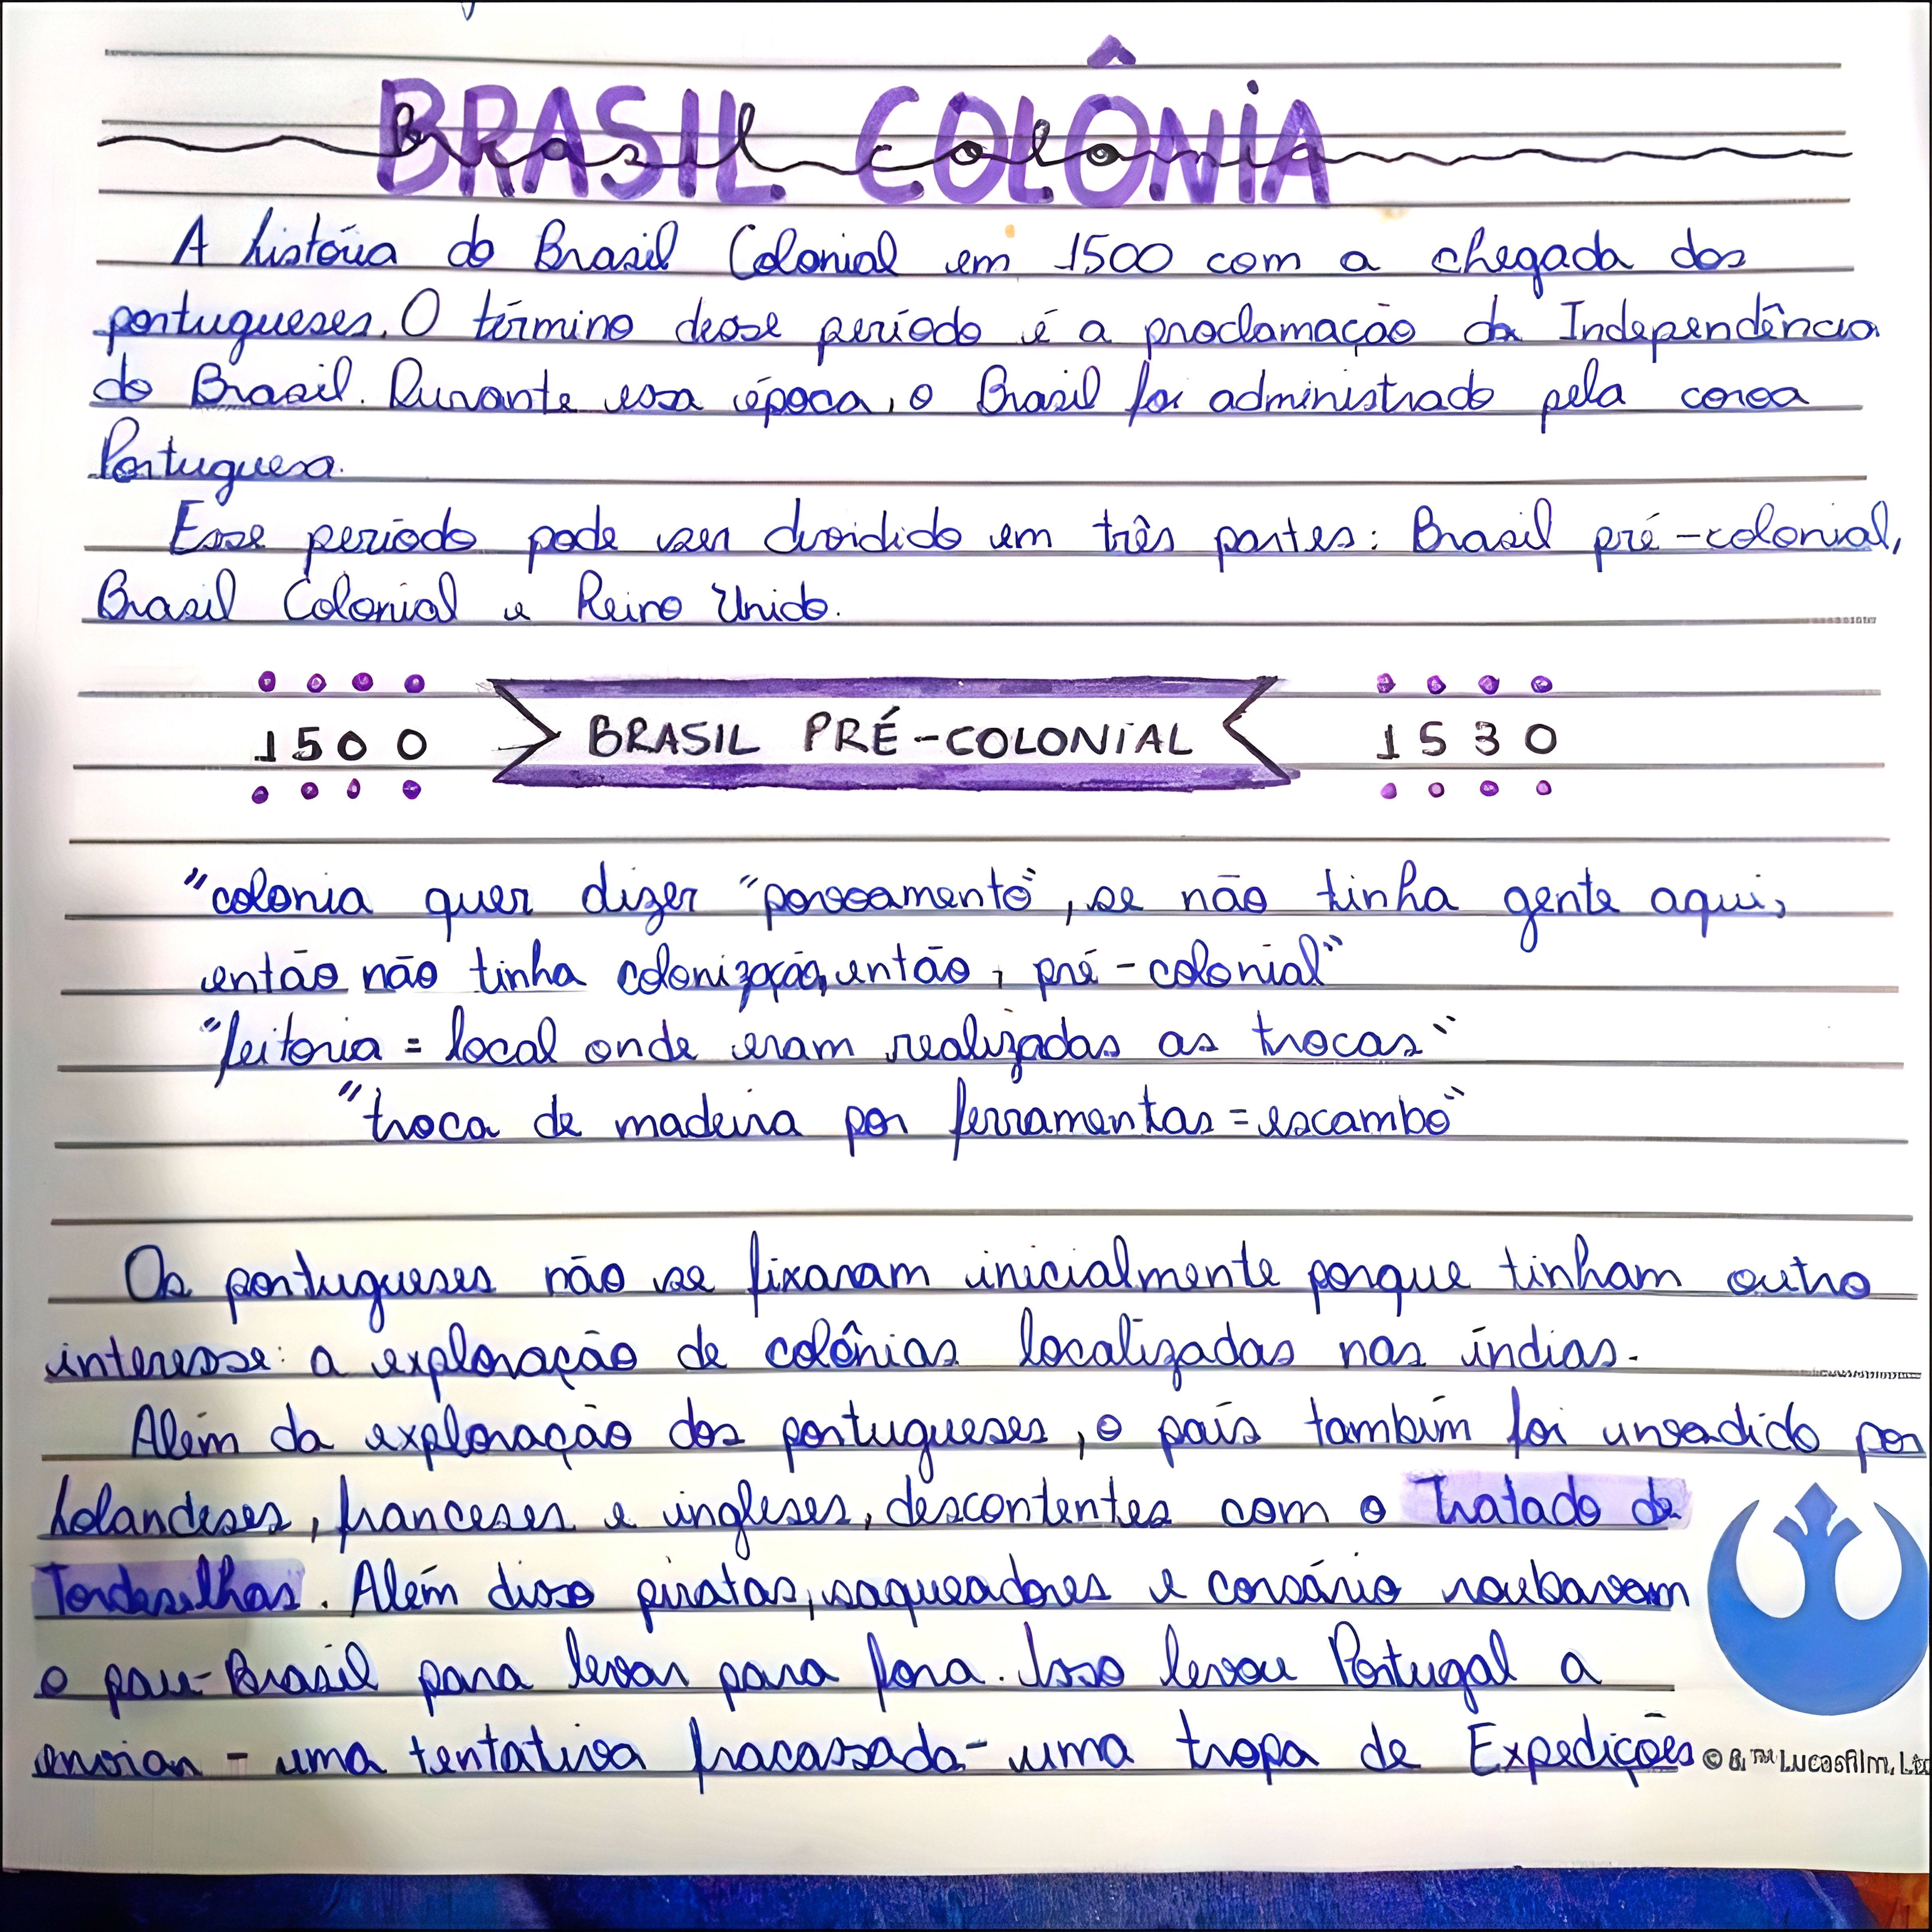 BRASIL COLÔNIA
Brasil colonia
A história do Brasil Colonial em 1500 com a chegada dos
portugueses. O término desse período é a proclamação da Independência
do Brasil. Durante essa época, o Brasil foi administrado pela coroa
Portuguesa.
Esse período pode ser dividido em três partes: Brasil pré-colonial,
Brasil Colonial e Reino Unido.
1500 BRASIL PRÉ-COLONIAL 1530
"colonia quer dizer "povoamento", se não tinha gente aqui,
então não tinha colonização, então, pré-colonial"
"feitoria = local onde eram realizadas as trocas"
"troca de madeira por ferramentas = escambo"
Os portugueses não se fixaram inicialmente porque tinham outro
interesse: a exploração de colônias localizadas nas índias.
Além da exploração dos portugueses, o país também foi invadido por
holandeses, franceses e ingleses, descontentes com o Tratado de
Tordesilhas. Além disso piratas, saqueadores e corsário roubavam
o pau-Brasil para levar para fora. Isso levou Portugal a
enviar - uma tentativa fracassada - uma tropa de Expedições
© & ™ Lucasfilm, Ltd